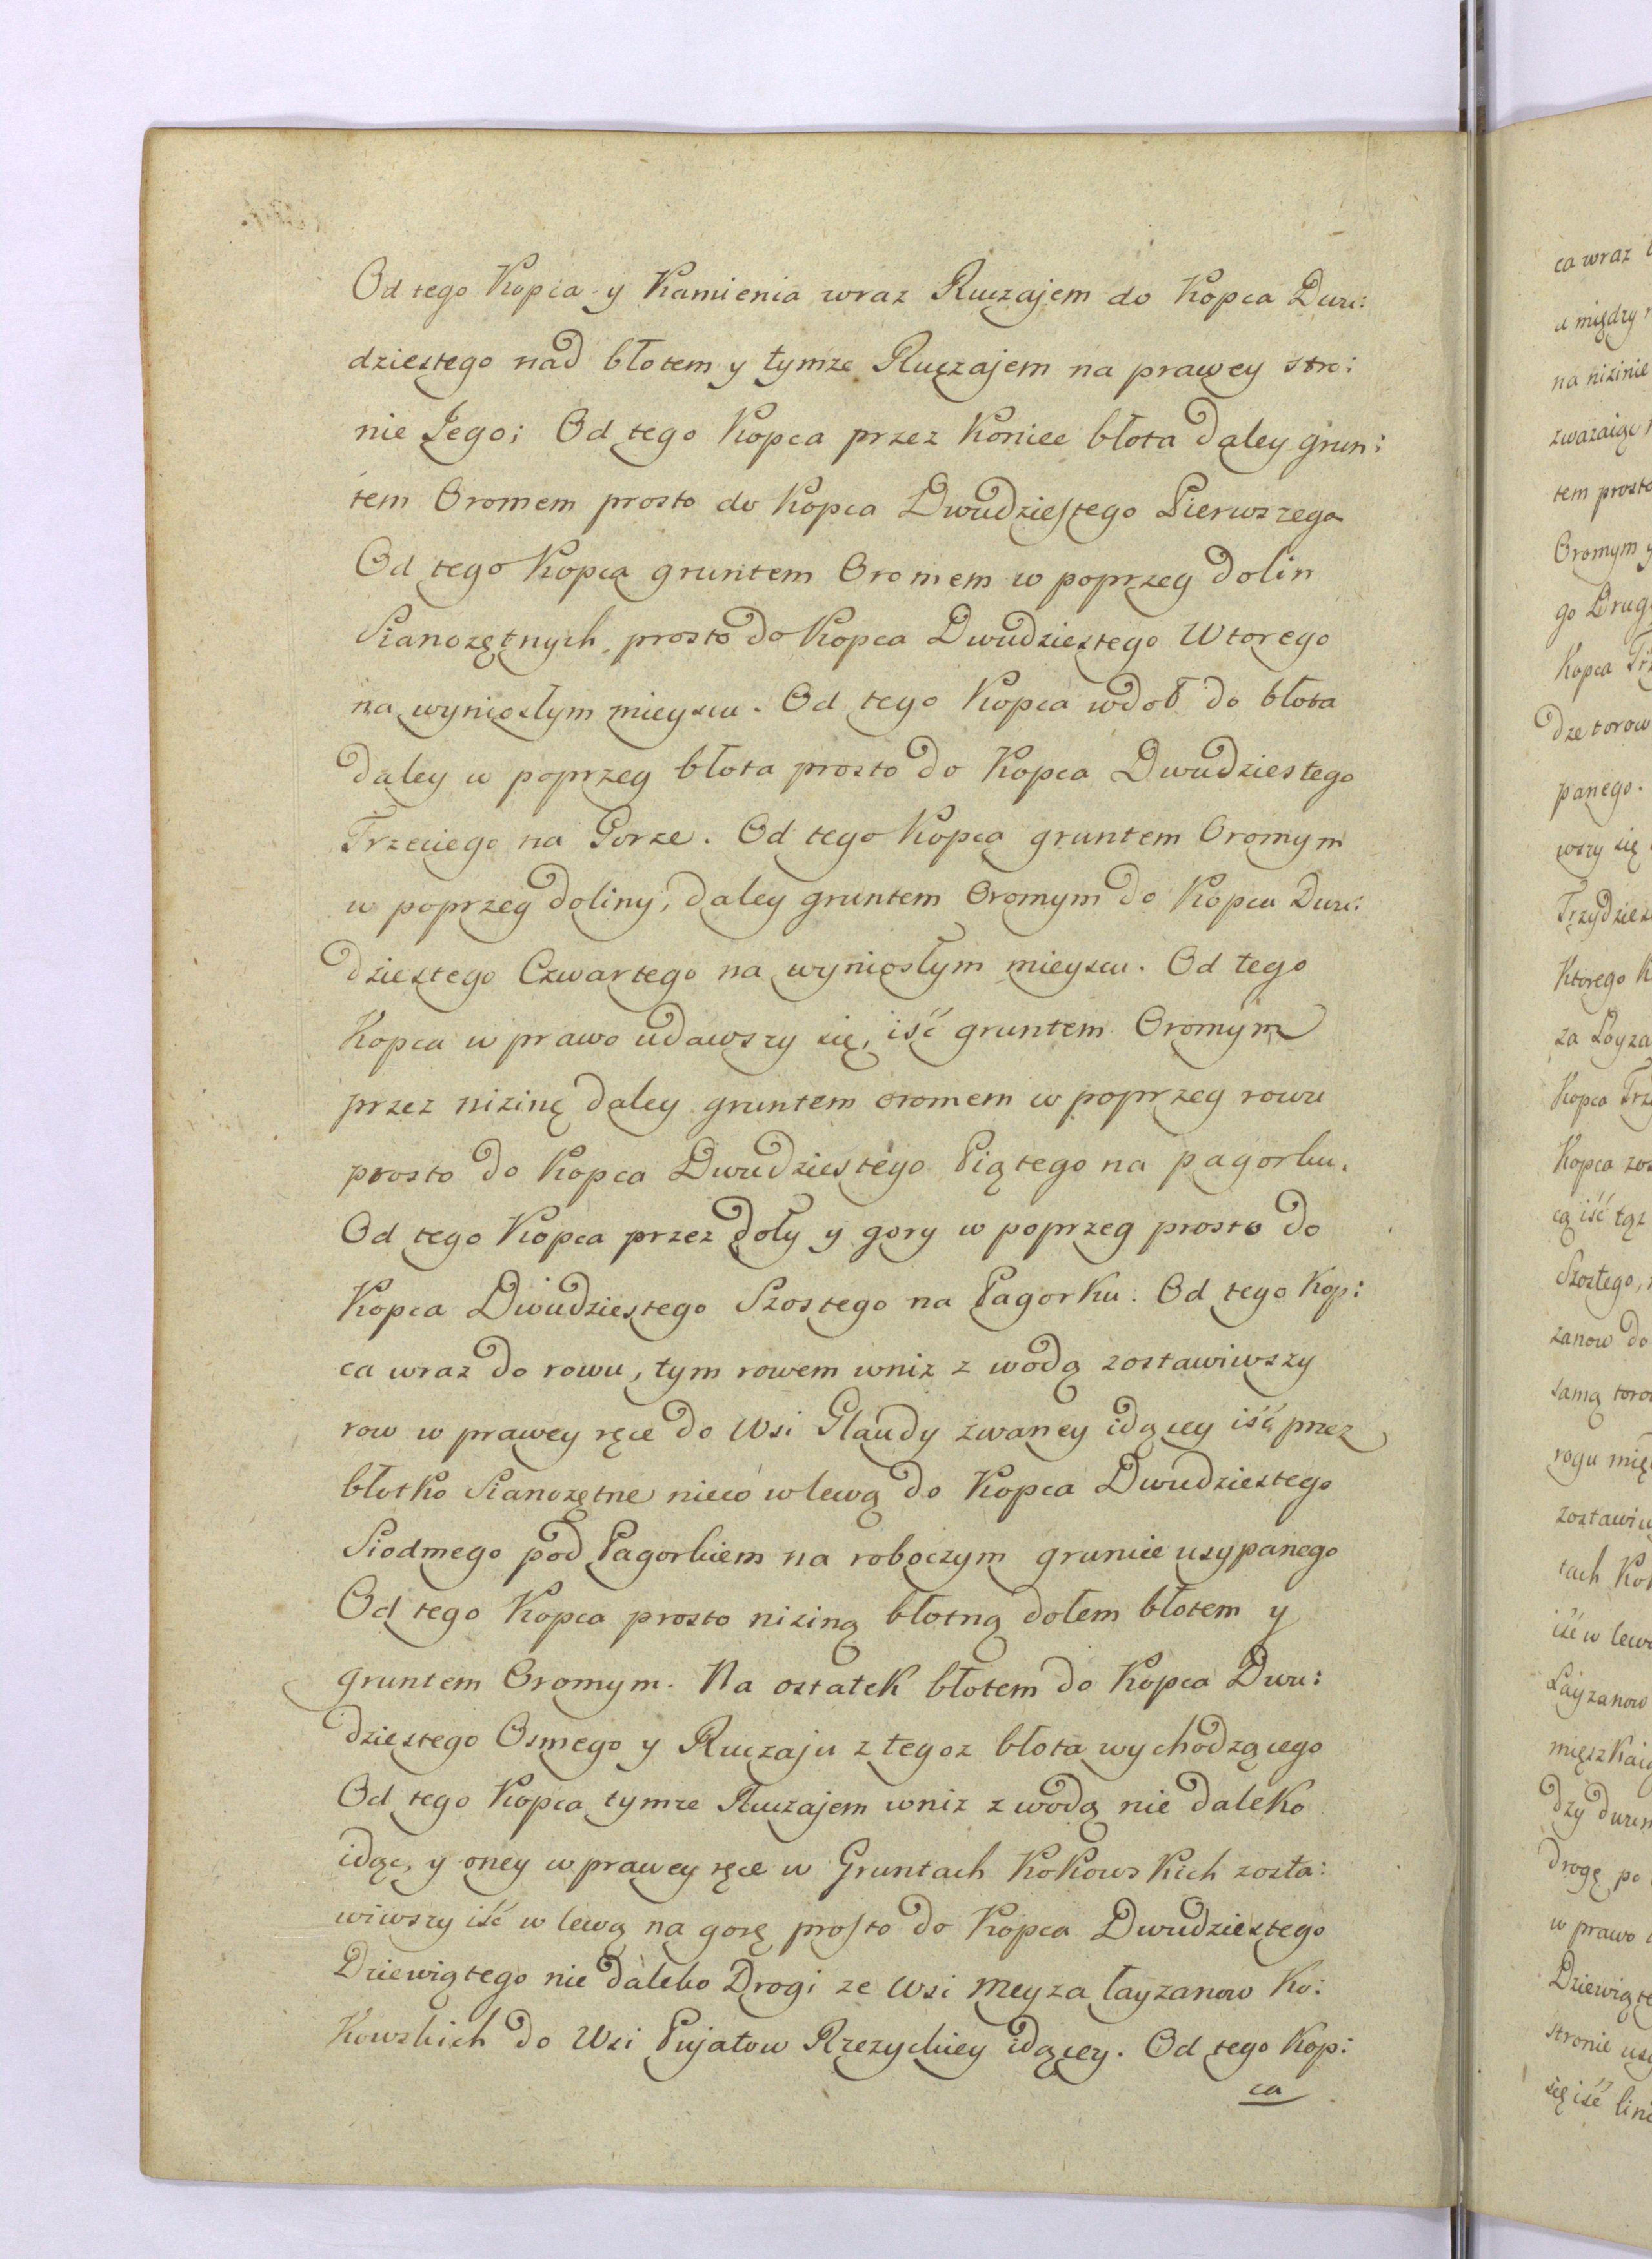 Od tego Kopca y Kamienia wraz Ruczajem do Kopca Dwu:
dziestego nad błotem y tymze Ruczajem na prawey stro:
nie Jego; Od tego Kopca przez Koniec błota daley grun:
tem Oromem prosto do Kopca Dwudziestego Pierwszego
Od tego Kopca gruntem Oromem w poprzeg dolin
Sianozętnych, prosto do Kopca Dwudziestego Wtorego
na wyniosłym mieyscu. Od tego Kopca wdoł do błota
daley w poprzeg błota prosto do Kopca Dwudziestego
Trzeciego na Gorze. Od tego Kopca gruntem Oromym
w poprzeg doliny, daley gruntem Oromym do Kopca Dwu:
dziestego Czwartego na wyniosłym mieyscu. Od tego
Kopca w prawo udawszy się, iść gruntem Oromym
przez nizinę daley gruntem oromem w poprzeg rowu
prosto do Kopca Dwudziestego Piątego na pagorku.
Od tego Kopca przez doły y gory w poprzeg prosto do
Kopca Dwudziestego Szostego na Pagorku. Od tego Kop:
ca wraz do rowu, tym rowem wniz z wodą zostawiwszy
row w prawey ręce do Wsi Glaudy zwaney idącey iść przez
błotko Sianozętne nieco w lewą do Kopca Dwudziestego
Siodmego pod Pagorkiem na roboczym gruncie usypanego
Od tego Kopca prosto niziną błotną dołem błotem y
gruntem Oromym. Na ostatek błotem do Kopca Dwu:
dziestego Osmego y Ruczaju z tegoz błota wychodzącego
Od tego Kopca tymze Ruczajem wniz z wodą nie daleko
idąc, y oney w prawey ręce w Gruntach Kokowskich zosta:
wiwszy iść w lewą na gorę prosto do Kopca Dwudziestego
Dziewiątego nie daleko Drogi ze Wsi Meyza Łayzanow Ko:
Kowskich do Wsi Pujatow Rzezyckiey idącey. Od tego Kop:
ca
ca wraz
u między
na nizinie
tem prosto
Oromym y
go Drug
Kopca Trz
panego.
wszy się
Ktorego K
Kopca Trz
Kopca zos
Szostego,
zanow do
zostawiw
iść w lew
Łayzanow
drogę po
w prawo
Dziewiąte
stronie usy
się iść lini